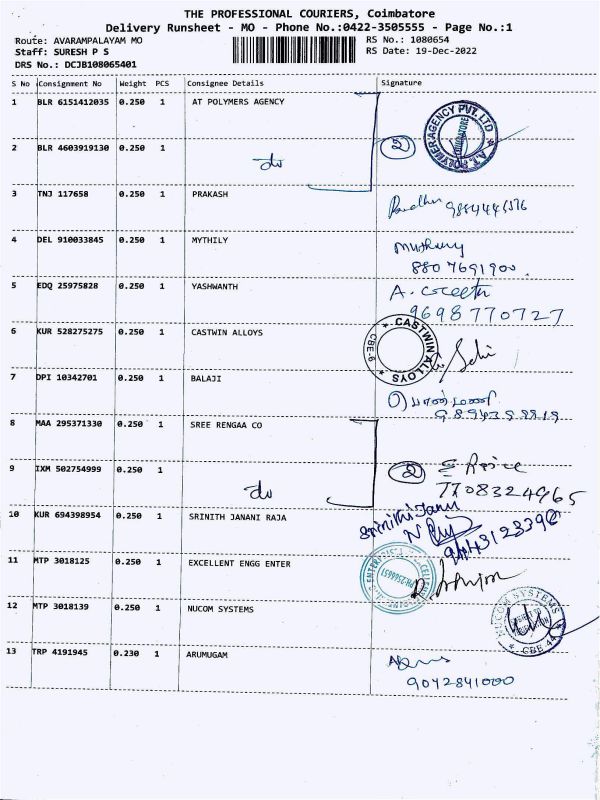 THE PROFESSIONAL COURIERS, Coimbatore
Delivery Runsheet - MO - Phone No.:0422-3505555 - Page No.:1
Route: AVARAMPALAYAM MO
RS No.: 1080654
Staff: SURESH P S
RS Date: 19-Dec-2022
DRS No.: DCJB108065401
S No Consignment No Weight PCS Consignee Details Signature
1 BLR 6151412035 0.250 1 AT POLYMERS AGENCY
A.T. POLYMER AGENCY PVT. LTD COIMBATORE
2 BLR 4603919130 0.250 1 do 2
3 TNJ 117658 0.250 1 PRAKASH
4 DEL 910033845 0.250 1 MYTHILY
8807691900
5 EDQ 25975828 0.250 1 YASHWANTH A. Geeth
9698770727
6 KUR 528275275 0.250 1 CASTWIN ALLOYS
CASTWIN ALLOYS CBE-6
7 DPI 10342701 0.250 1 BALAJI
8 MAA 295371330 0.250 1 SREE RENGAA CO
9 IXM 502754999 0.250 1 do 2
7708324965
10 KUR 694398954 0.250 1 SRINITH JANANI RAJA Srinithi Janani
11 MTP 3018125 0.250 1 EXCELLENT ENGG ENTER
12 MTP 3018139 0.250 1 NUCOM SYSTEMS
NUCOM SYSTEMS
13 TRP 4191945 0.230 1 ARUMUGAM
9042841000